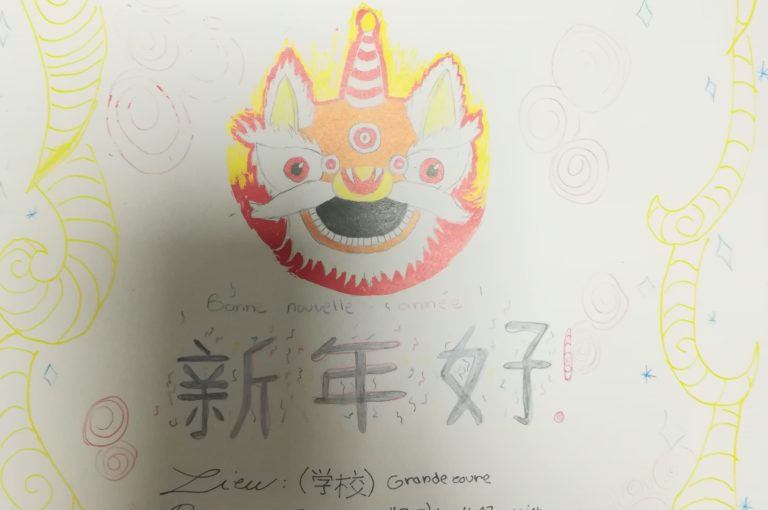 Bonne nouvelle année
新年好!
Lieu: (学校) Grande coure